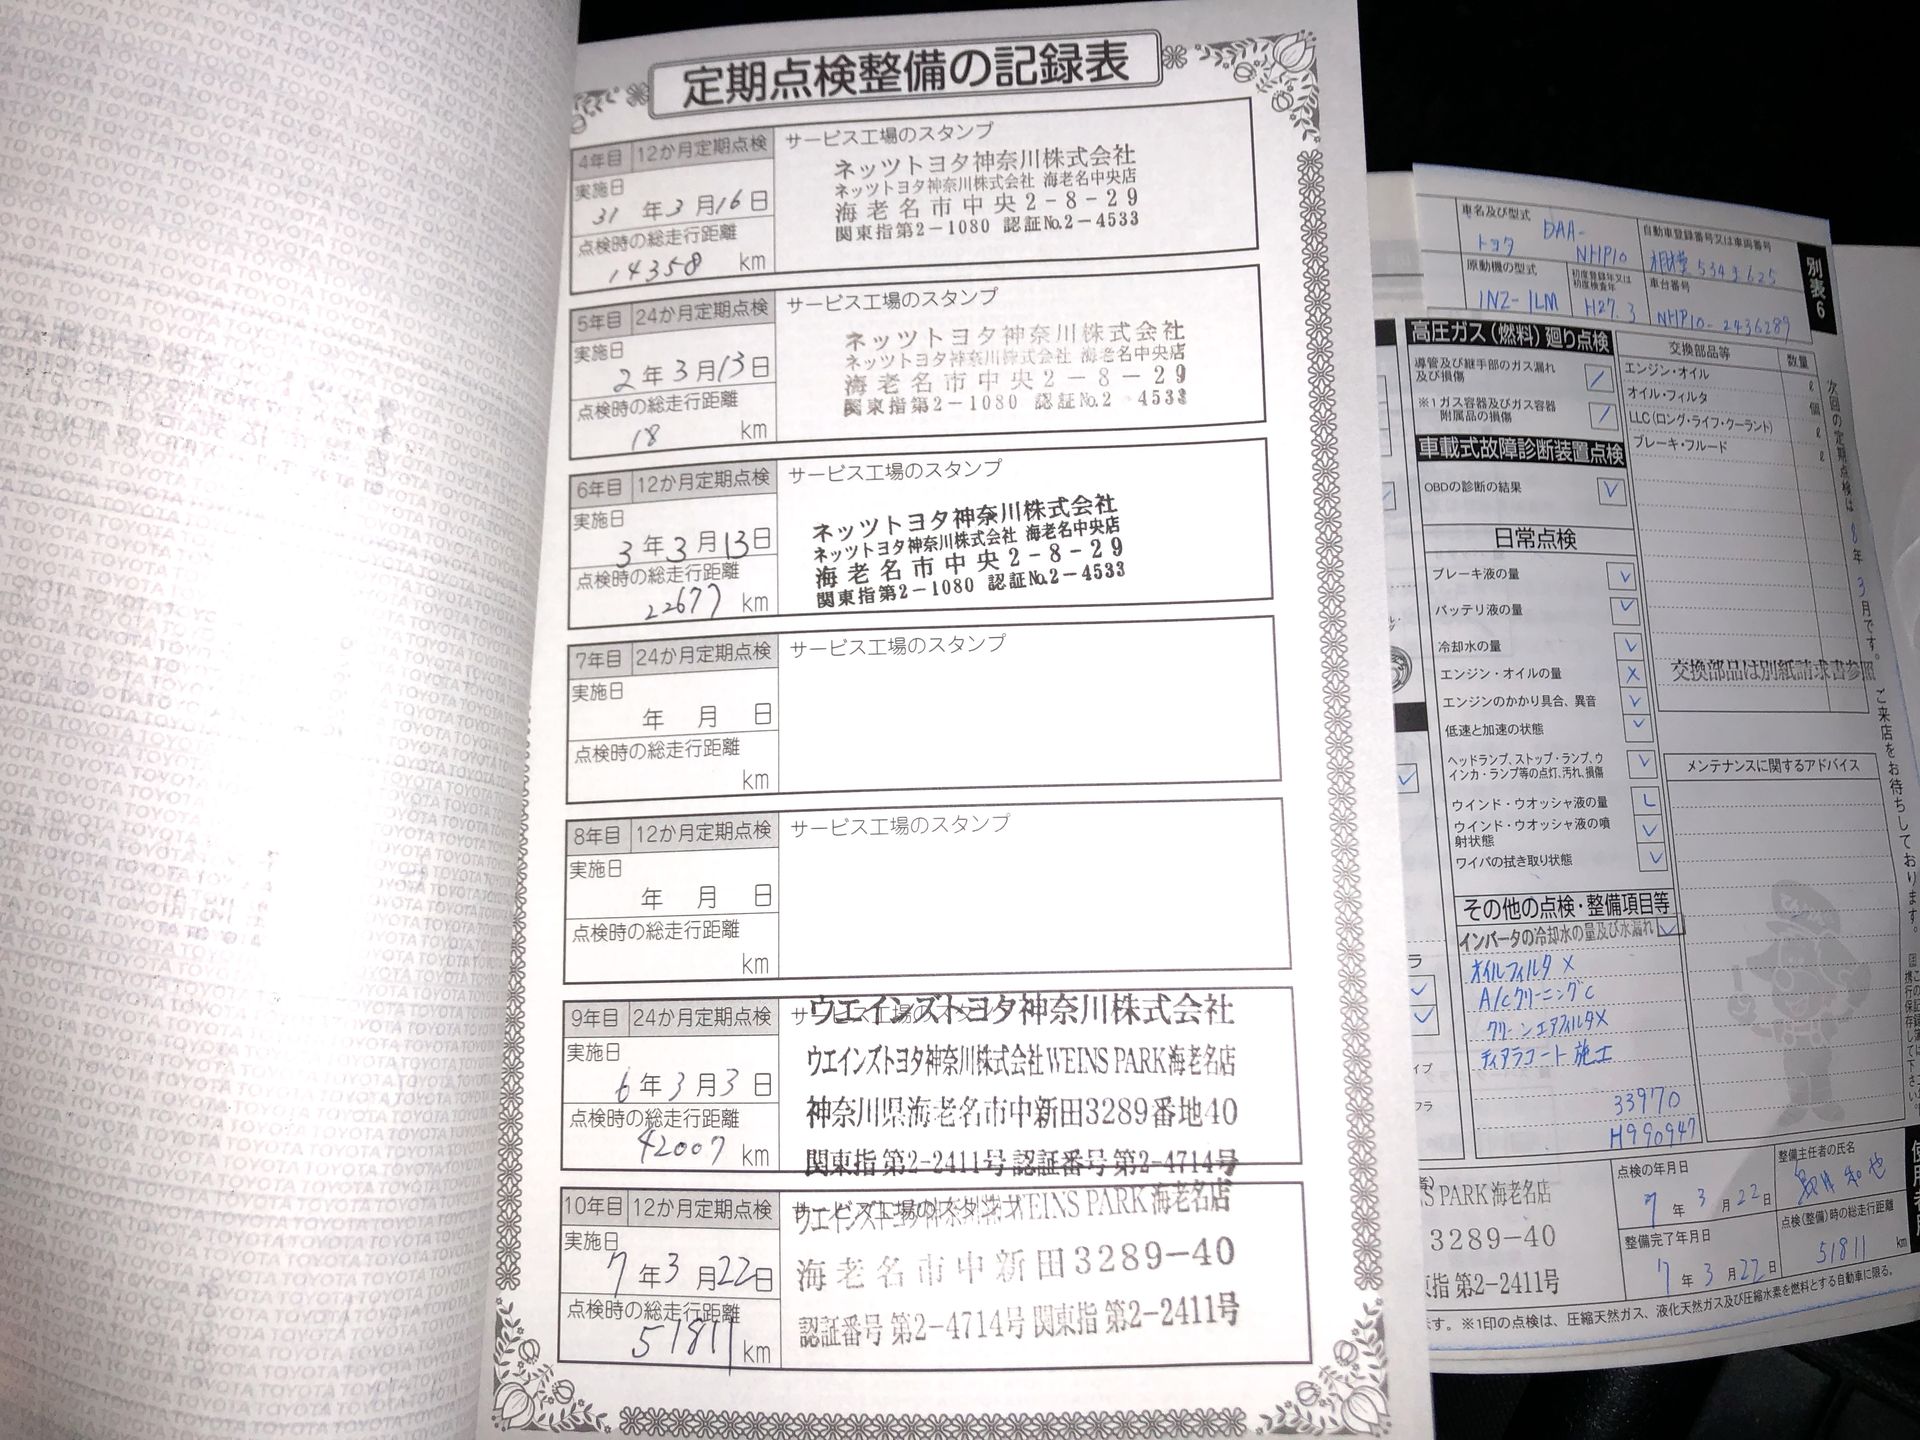 定期点検整備の記録表
4年目 12か月定期点検 サービス工場のスタンプ
実施日
31年3月16日
点検時の総走行距離
14358 km
ネッツトヨタ神奈川株式会社
ネッツトヨタ神奈川株式会社 海老名中央店
海老名市中央2-8-29
関東指第2-1080 認証No.2-4533
5年目 24か月定期点検 サービス工場のスタンプ
実施日
2年3月13日
点検時の総走行距離
18 km
ネッツトヨタ神奈川株式会社
ネッツトヨタ神奈川株式会社 海老名中央店
海老名市中央2-8-29
関東指第2-1080 認証No.2 4533
6年目 12か月定期点検 サービス工場のスタンプ
実施日
3年3月13日
点検時の総走行距離
22677 km
ネッツトヨタ神奈川株式会社
ネッツトヨタ神奈川株式会社 海老名中央店
海老名市中央2-8-29
関東指第2-1080 認証No.2-4533
7年目 24か月定期点検 サービス工場のスタンプ
実施日
年 月 日
点検時の総走行距離
km
8年目 12か月定期点検 サービス工場のスタンプ
実施日
年 月 日
点検時の総走行距離
km
9年目 24か月定期点検 サービス工場のスタンプ
実施日
6年3月3日
点検時の総走行距離
42007 km
ウエインズトヨタ神奈川株式会社
ウエインズトヨタ神奈川株式会社WEINS PARK海老名店
神奈川県海老名市中新田3289番地40
関東指第2-2411号 認証番号 第2-4714号
10年目 12か月定期点検 サービス工場のスタンプ
実施日
7年3月22日
点検時の総走行距離
51811 km
WEINS PARK海老名店
海老名市中新田3289-40
認証番号 第2-4714号 関東指 第2-2411号
別表6
車名及び型式
トヨタ DAA-NHP10
自動車登録番号又は車両番号
原動機の型式
1NZ-1LM
初度登録年又は初度検査年
H27.3
車台番号
NHP10-2436289
高圧ガス(燃料)廻り点検
導管及び継手部のガス漏れ
及び損傷
※1 ガス容器及びガス容器
附属品の損傷
車載式故障診断装置点検
OBDの診断の結果
日常点検
ブレーキ液の量
バッテリ液の量
冷却水の量
エンジン・オイルの量
エンジンのかかり具合、異音
低速と加速の状態
ヘッドランプ、ストップ・ランプ、ウ
インカ・ランプ等の点灯、汚れ、損傷
ウインド・ウオッシャ液の量
ウインド・ウオッシャ液の噴
射状態
ワイパの拭き取り状態
その他の点検・整備項目等
インバータの冷却水の量及び水漏れ
オイルフィルタ X
A/Cクリーニング C
クリーンエアフィルタX
ティアラコート施工
33970
H990947
交換部品等 数量
エンジン・オイル ℓ
オイル・フィルタ 個
LLC(ロング・ライフ・クーラント) ℓ
ブレーキ・フルード ℓ
交換部品は別紙請求書参照
メンテナンスに関するアドバイス
次回の定期点検は8年3月です。ご来店をお待ちしております。
点検の年月日
7年3月22日
整備完了年月日
7年3月22日
整備主任者の氏名
点検(整備)時の総走行距離
51811 km
PARK海老名店
3289-40
指 第2-2411号
※1印の点検は、圧縮天然ガス、液化天然ガス及び圧縮水素を燃料とする自動車に限る。